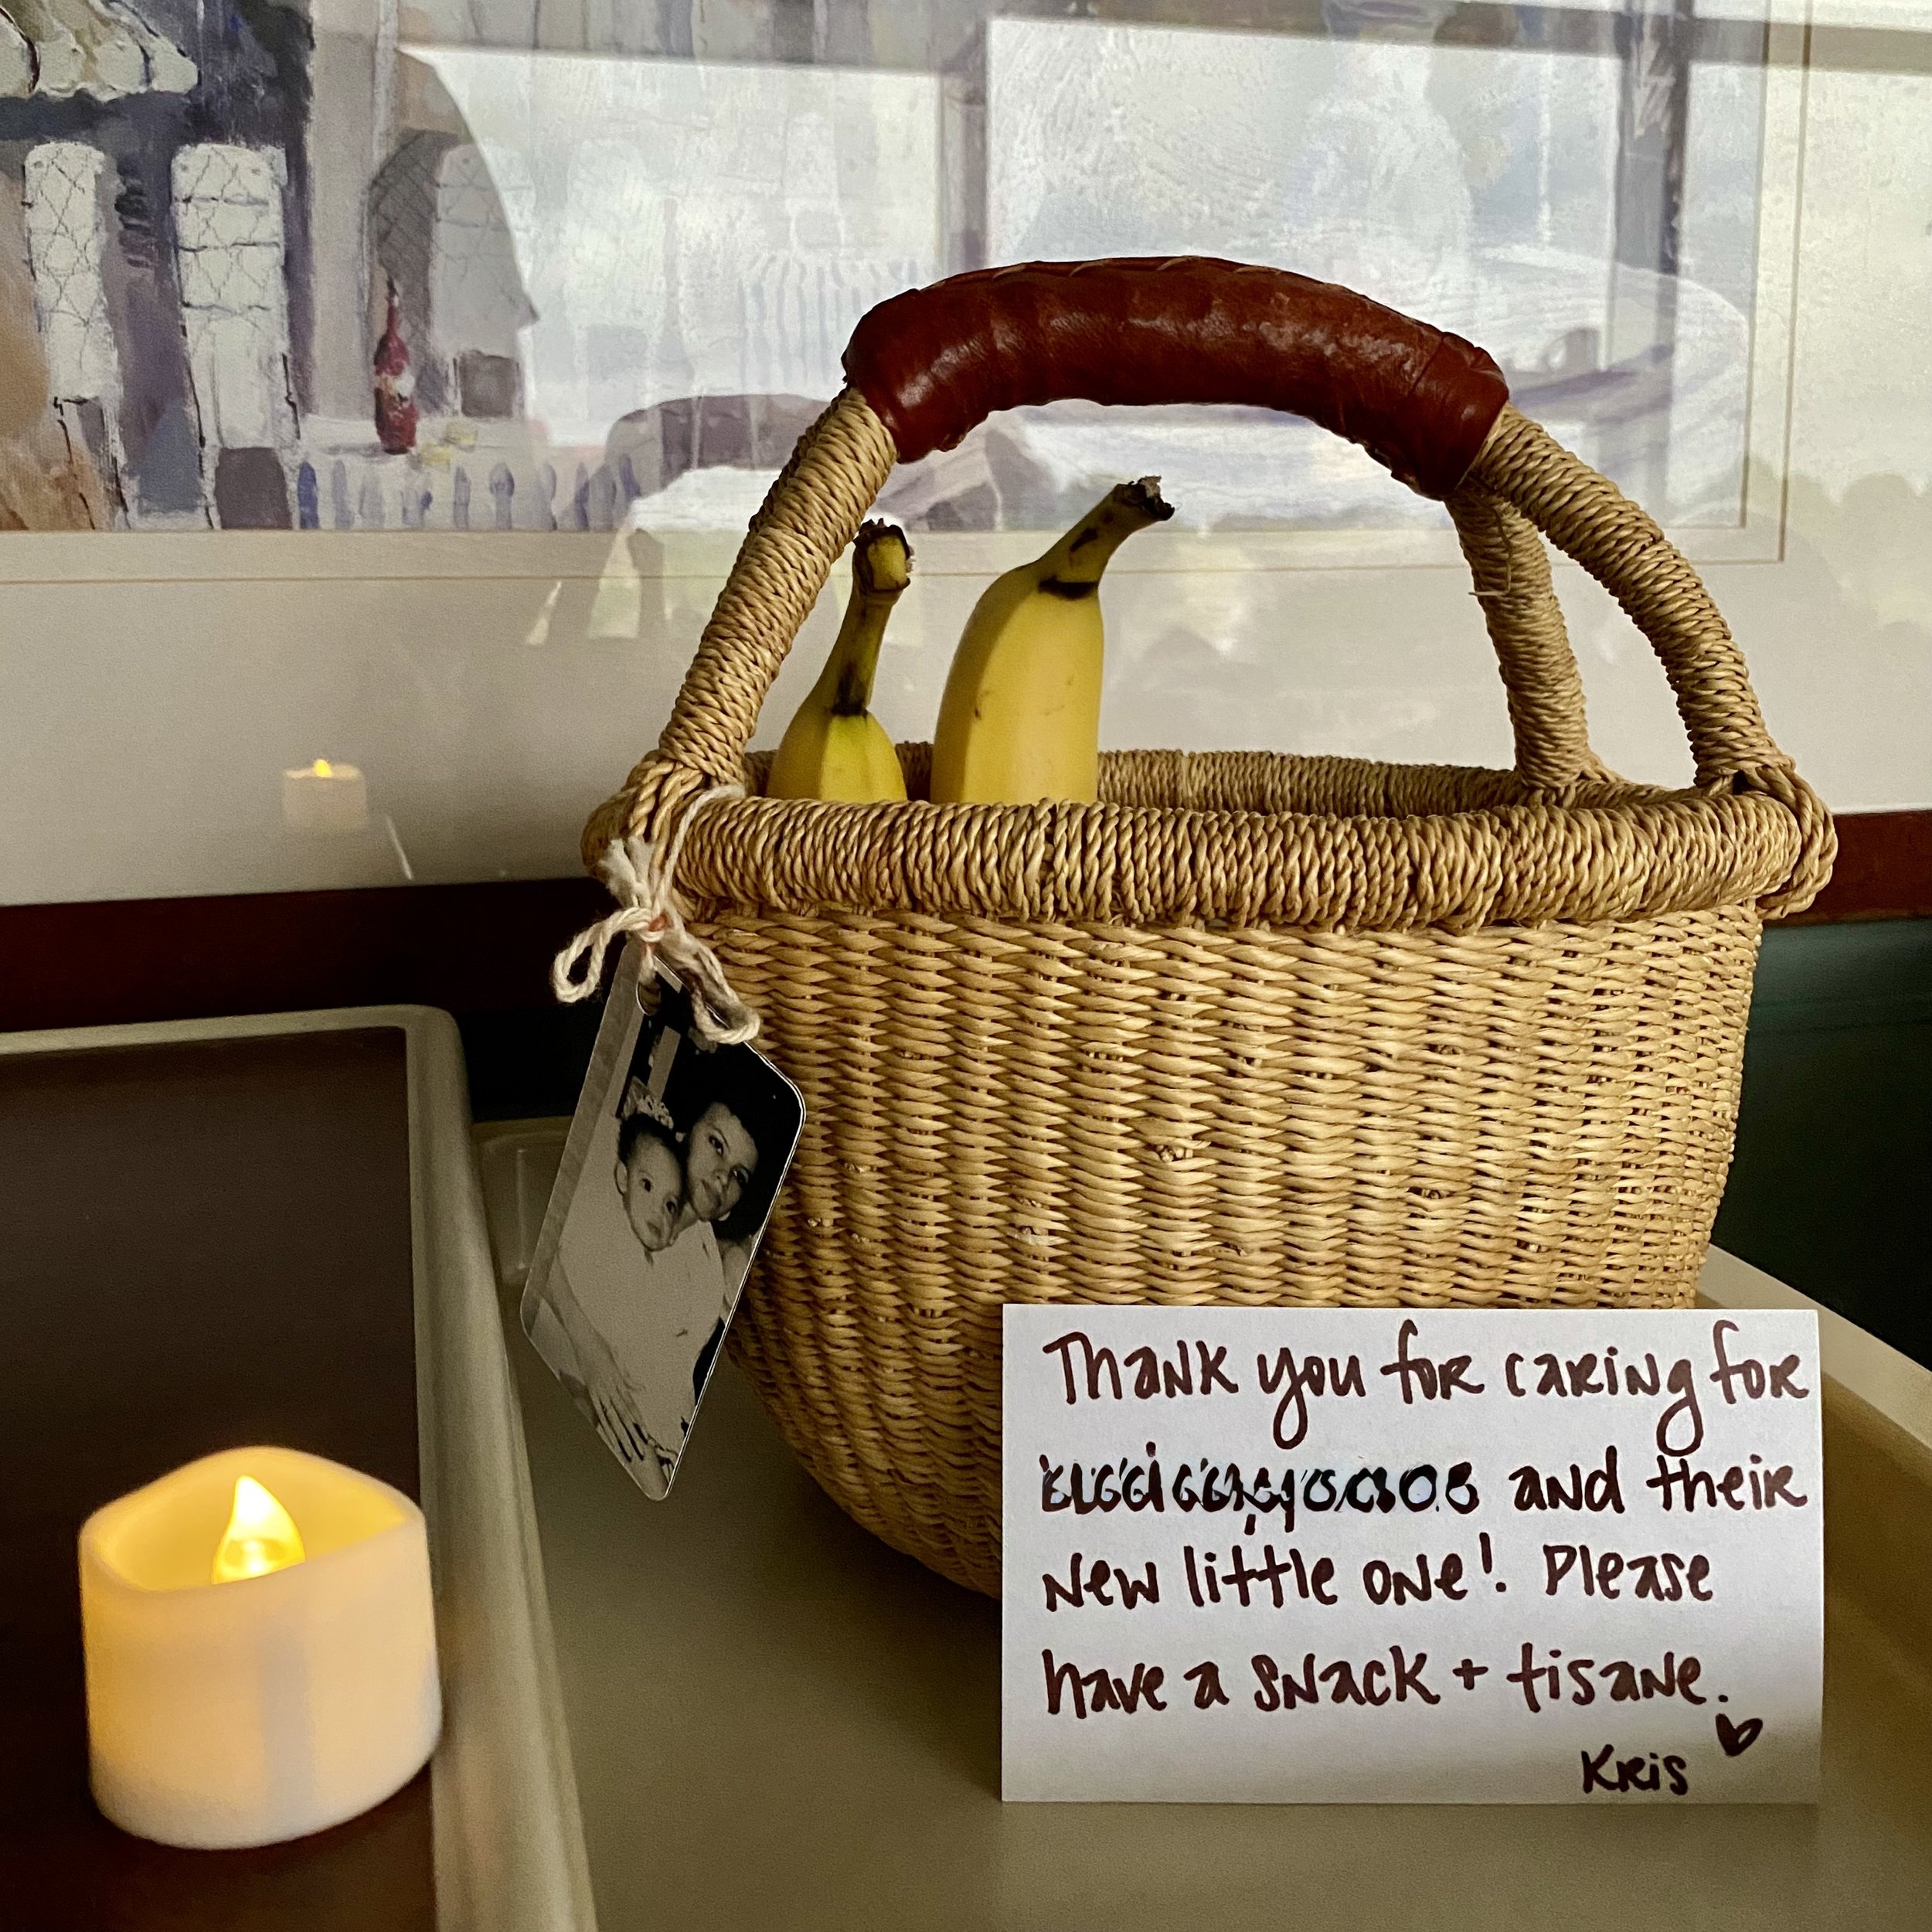 Thank you for caring for
and their
new little one! Please
have a snack + tisane.
Kris